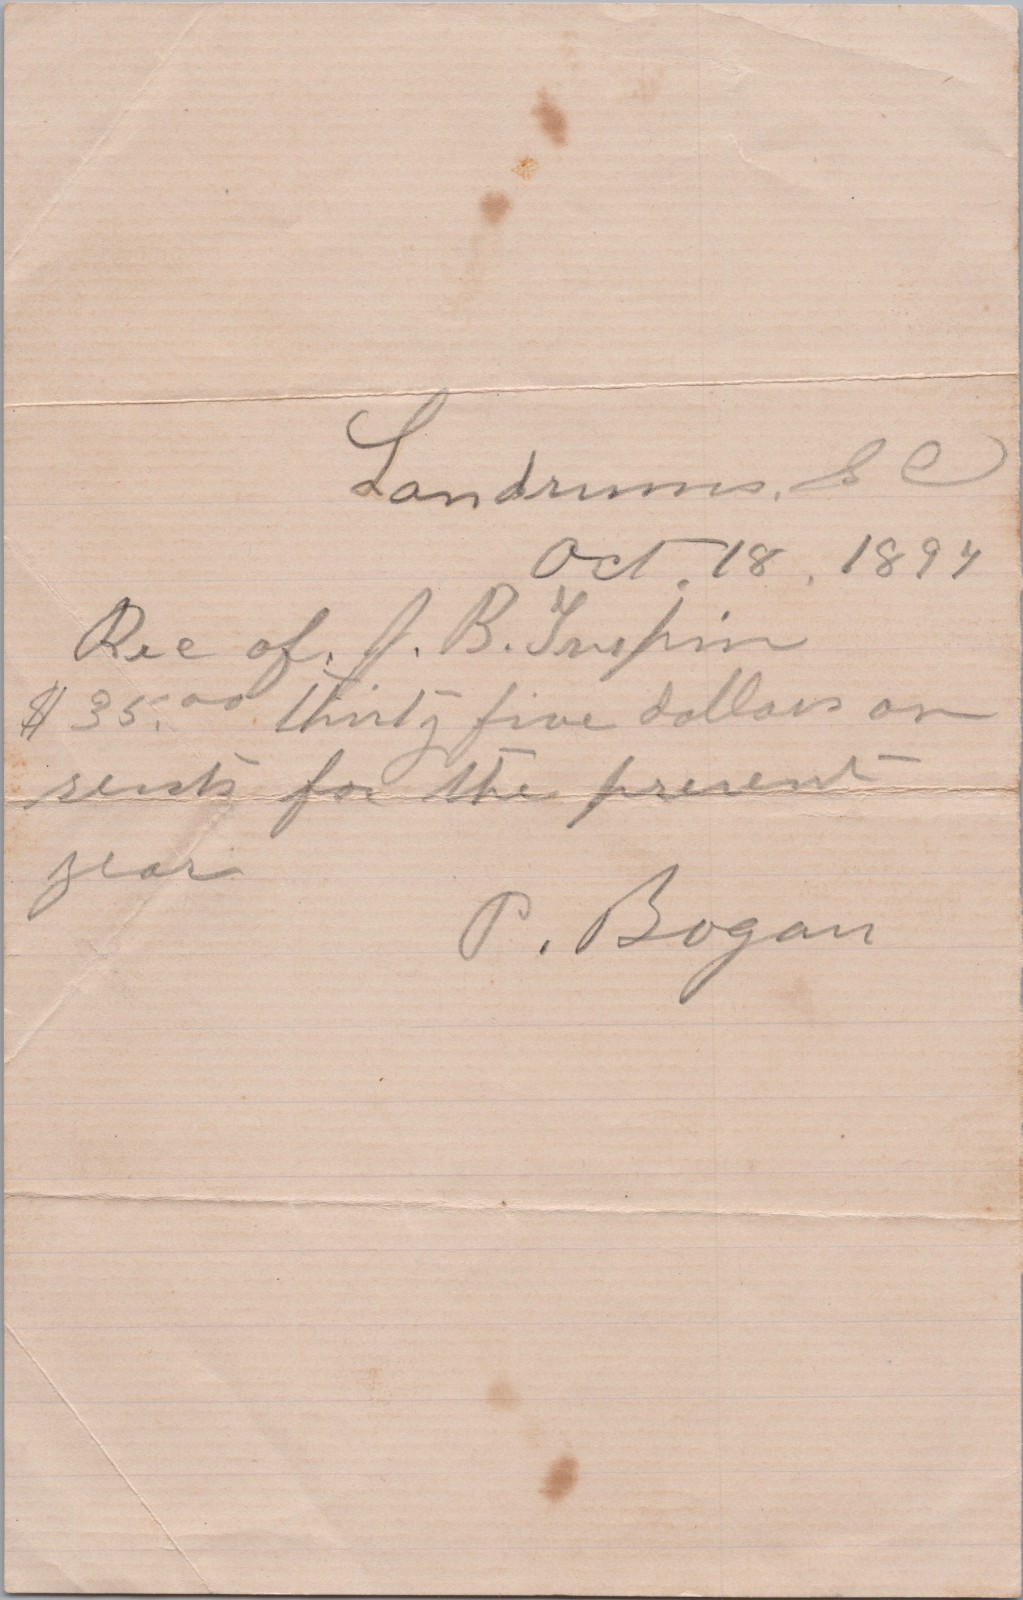 Landrums, S C
Oct. 18, 1894
Rec of. J. B. Turpin
$35.00 thirty five dollars on
rents for the present
year
P. Bogan